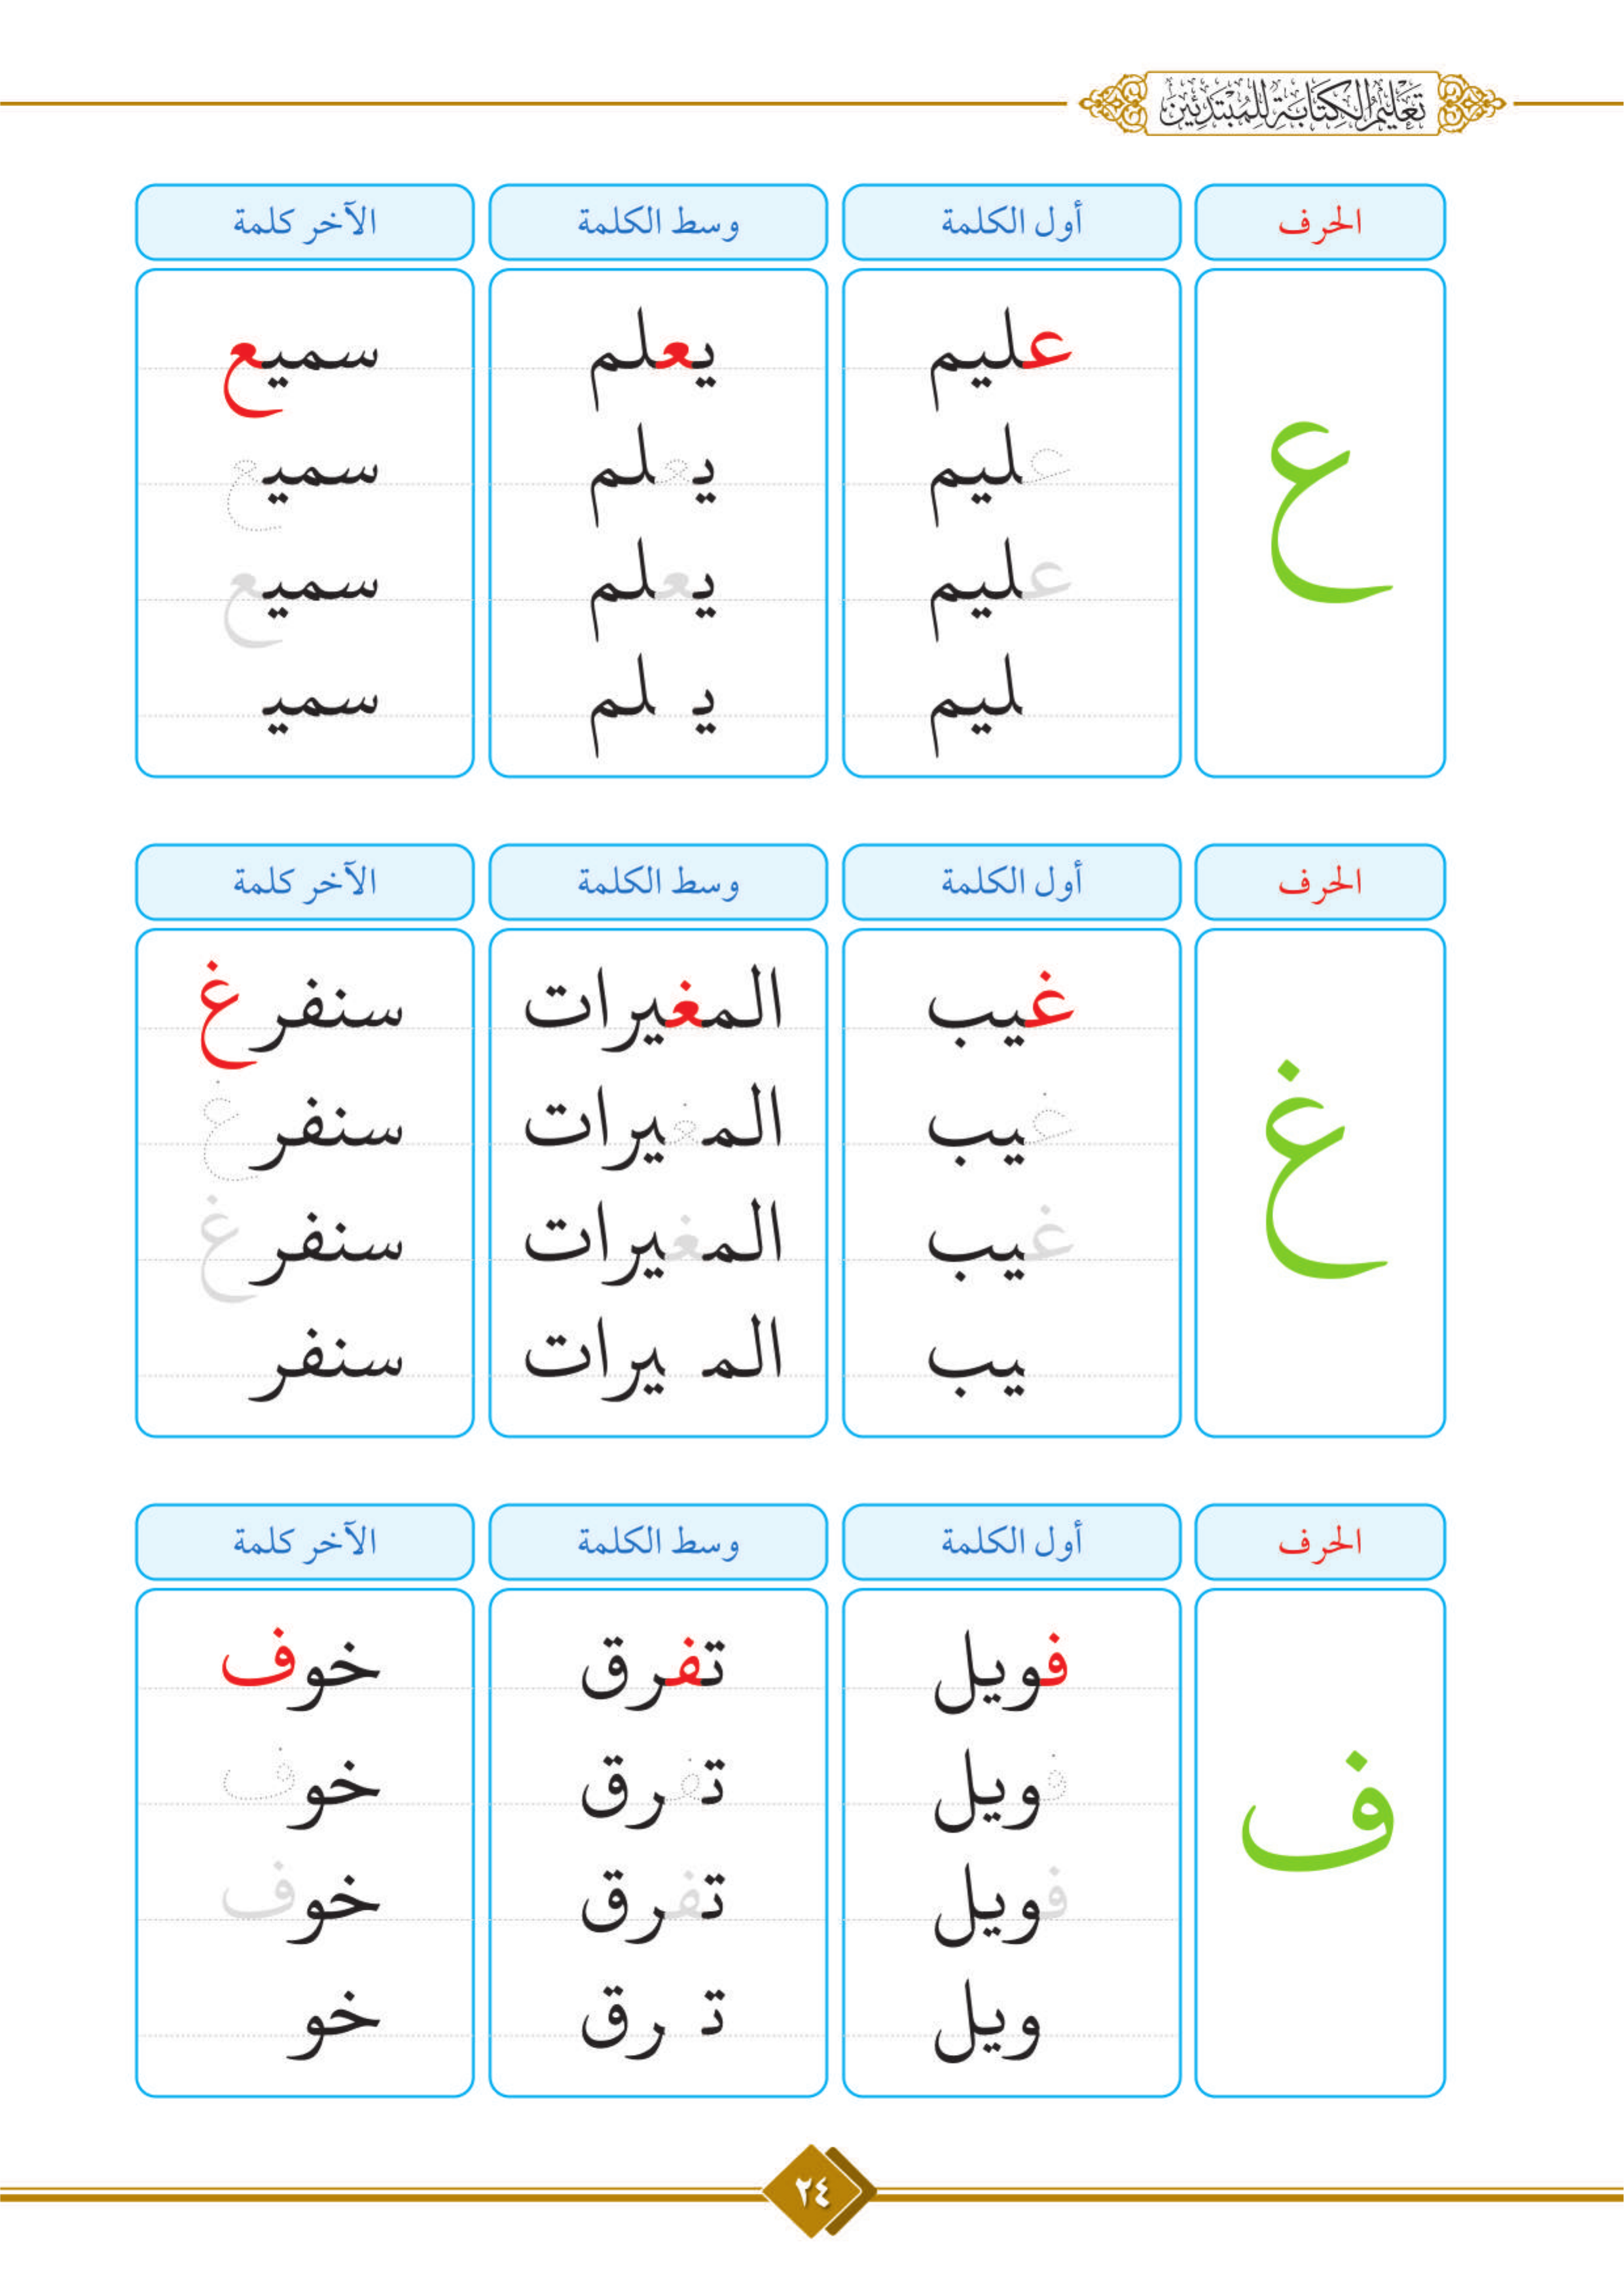 تعليم الكتابة للمبتدئين
الحرف أول الكلمة وسط الكلمة الآخر كلمة
ع
عليم يعلم سميع
عليم يعلم سميع
عليم يعلم سميع
ليم يـ لم سميـ
الحرف أول الكلمة وسط الكلمة الآخر كلمة
غ
غيب المغيرات سنفرغ
غيب المغيرات سنفرغ
غيب المغيرات سنفرغ
يب المـ يرات سنفر
الحرف أول الكلمة وسط الكلمة الآخر كلمة
ف
فويل تفرق خوف
فويل تفرق خوف
فويل تفرق خوف
ويل تـ رق خو
٢٤